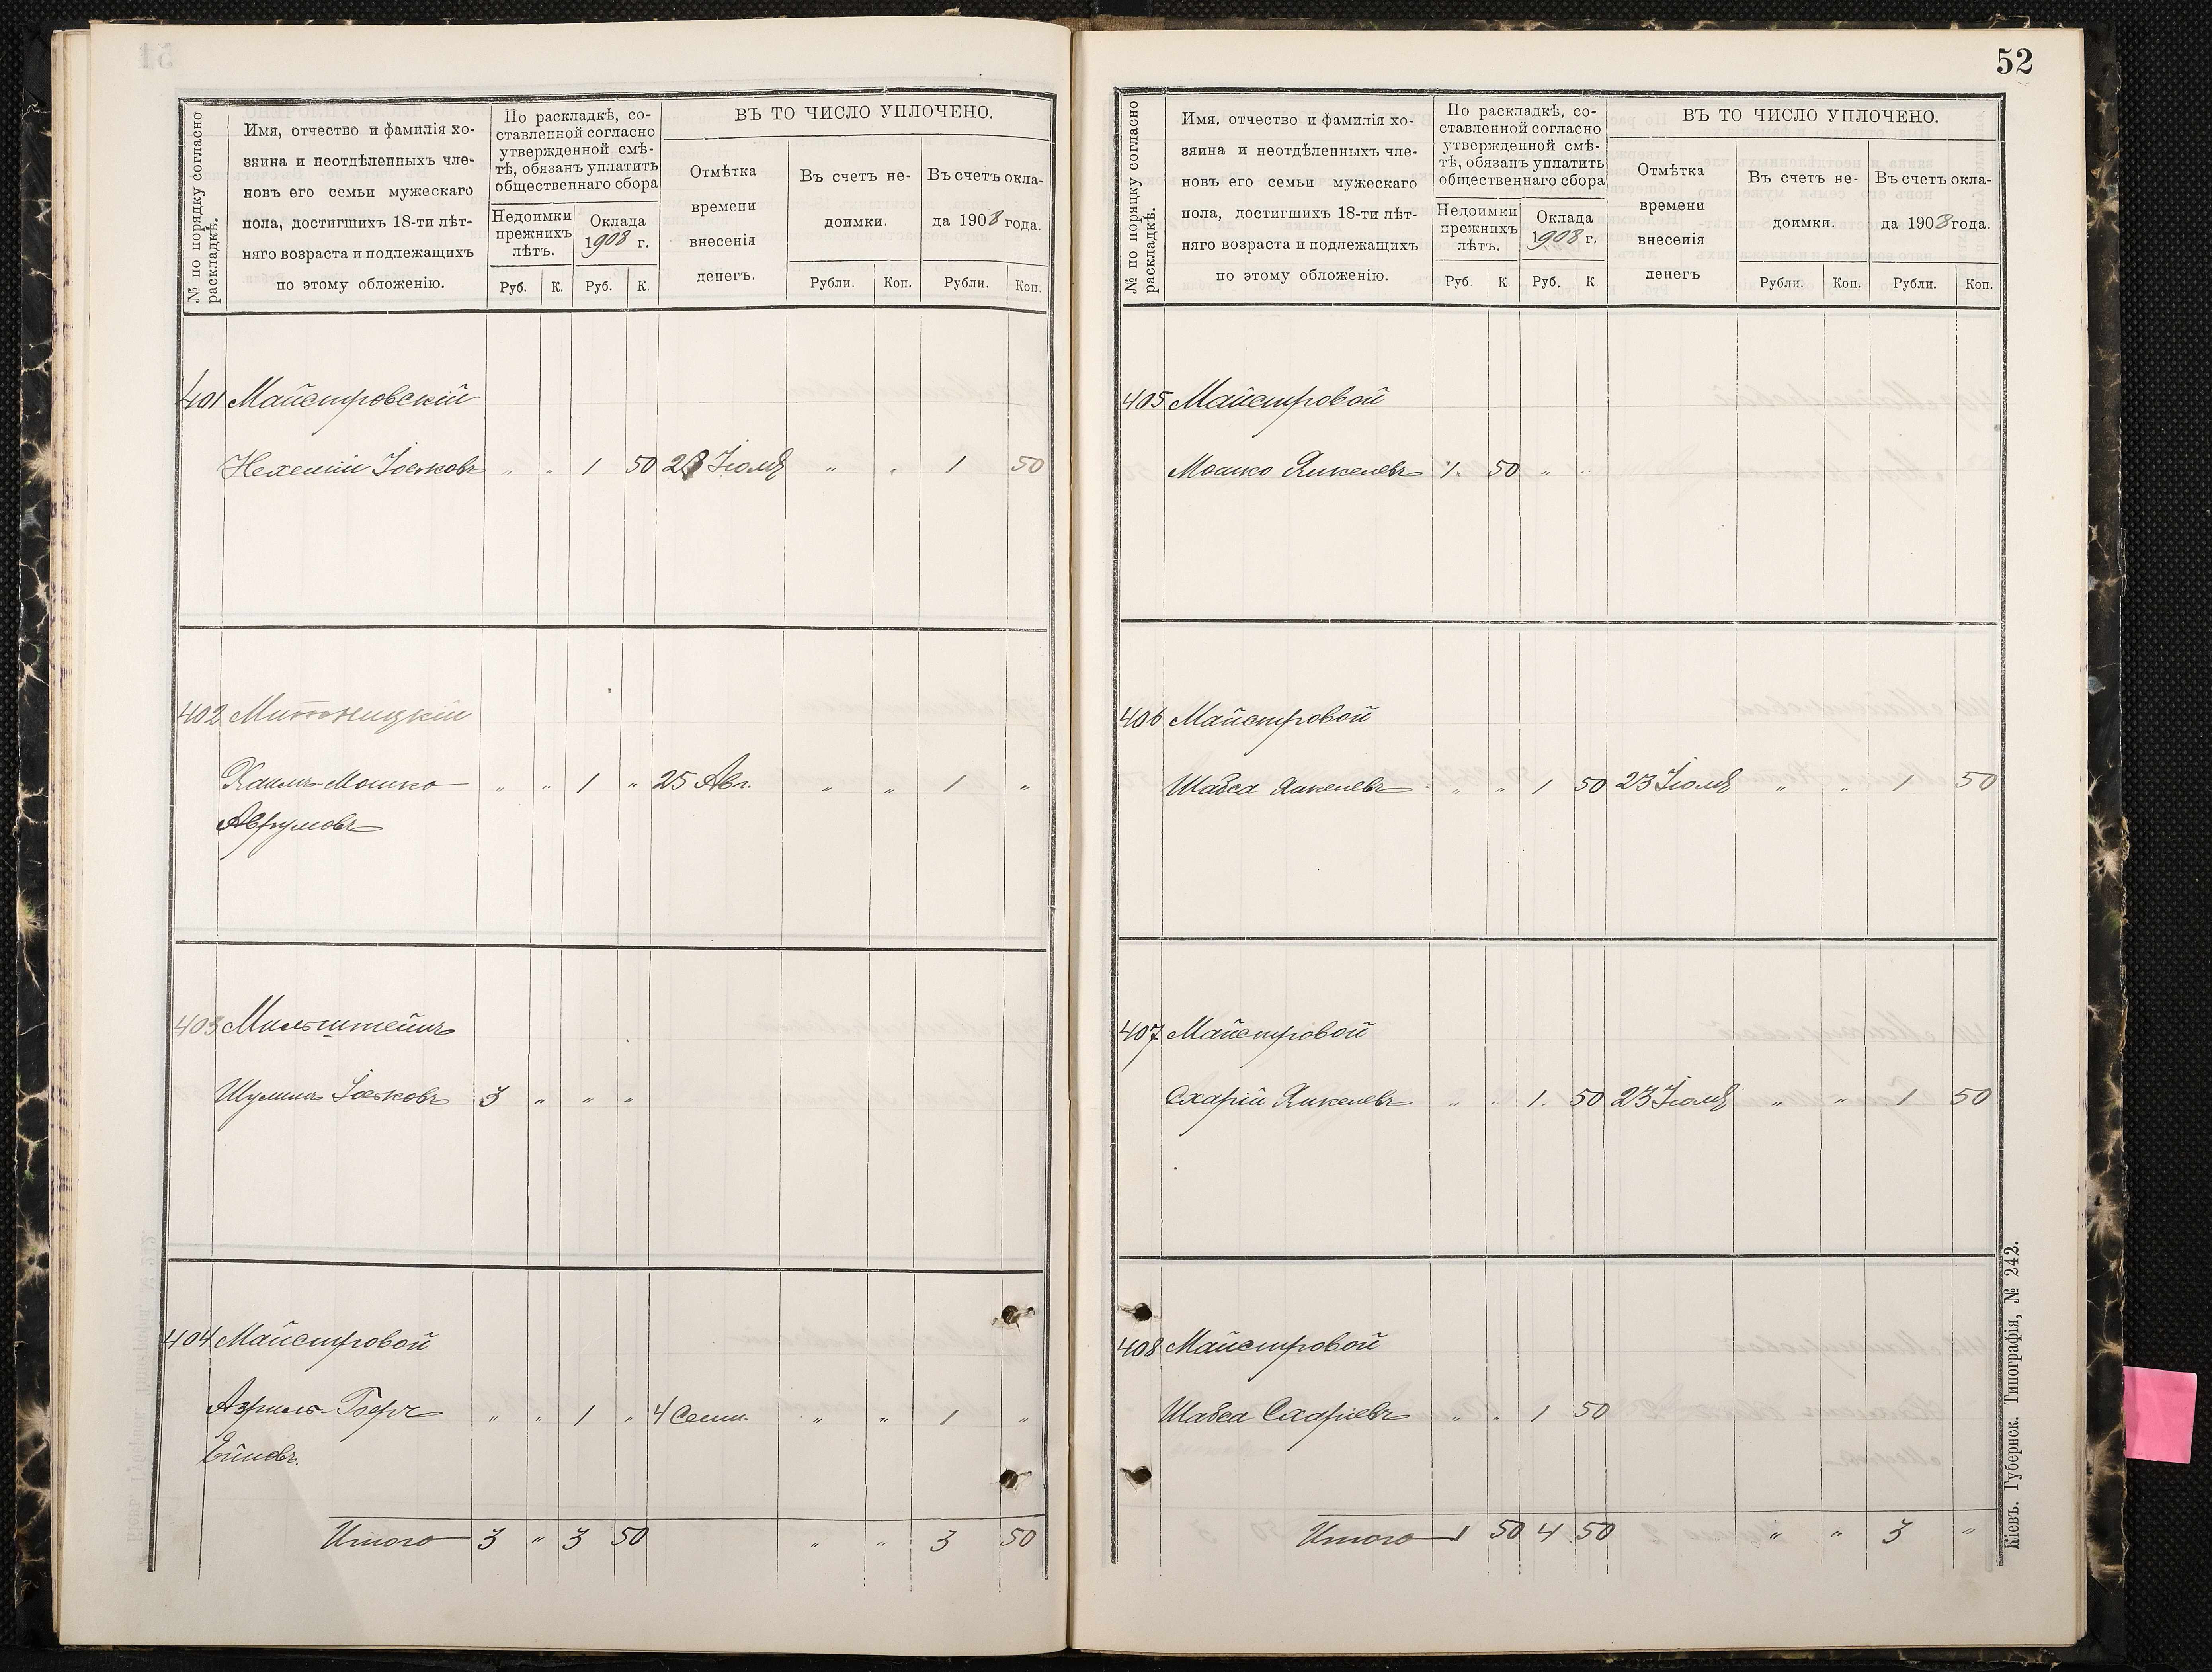 № по порядку согласно
раскладкѣ.
Имя, отчество и фамилія хо-
зяина и неотдѣленныхъ чле-
новъ его семьи мужескаго
пола, достигшихъ 18-ти лѣт-
няго возраста и подлежащихъ
по этому обложенію.
По раскладкѣ, со-
ставленной согласно
утвержденной смѣ-
тѣ, обязанъ уплатить
общественнаго сбора
Недоимки
прежнихъ
лѣтъ.
Оклада
1908 г.
Руб. К. Руб. К.
ВЪ ТО ЧИСЛО УПЛОЧЕНО.
Отмѣтка
времени
внесенія
денегъ.
Въ счетъ не-
доимки.
Въ счетъ окла-
да 1908 года.
Рубли. Коп. Рубли. Коп.
401 Майстровскій
Нехемій Іоськовъ „ „ 1 50 23 Іюля „ „ 1 50
402
Хаимъ-Мошко „ „ 1 „ 25 Авг. „ „ 1 „
Аврумовъ
403 Мильштейнъ
Шулимъ Іоськовъ 3 „ „ „
404 Майстровой
Азриль-Беръ „ „ 1 „ 4 Сент. „ „ 1 „
Итого 3 „ 3 50 „ „ 3 50
52
№ по порядку согласно
раскладкѣ.
Имя, отчество и фамилія хо-
зяина и неотдѣленныхъ чле-
новъ его семьи мужескаго
пола, достигшихъ 18-ти лѣт-
няго возраста и подлежащихъ
по этому обложенію.
По раскладкѣ, со-
ставленной согласно
утвержденной смѣ-
тѣ, обязанъ уплатить
общественнаго сбора
Недоимки
прежнихъ
лѣтъ.
Оклада
1908 г.
Руб. К. Руб. К.
ВЪ ТО ЧИСЛО УПЛОЧЕНО.
Отмѣтка
времени
внесенія
денегъ
Въ счетъ не-
доимки.
Въ счетъ окла-
да 1908 года.
Рубли. Коп. Рубли. Коп.
405 Майстровой
Мошко Янкелевъ 1. 50 „ „
406 Майстровой
Шабса Янкелевъ „ „ 1 50 23 Іюля „ „ 1 50
407 Майстровой
Схарій Янкелевъ „ „ 1. 50 23 Іюля „ „ 1 50
408 Майстровой
Шабса Схаріевъ „ „ 1 50
Итого 1 50 4 50 „ „ 3 „
Кіевъ. Губернск. Типографія, № 242.